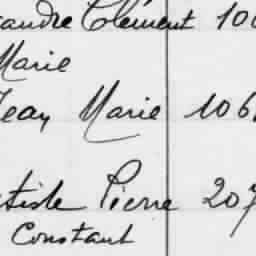 andre Clément 100
Marie
Jean Marie 106
tiste Pierre 207
Constant